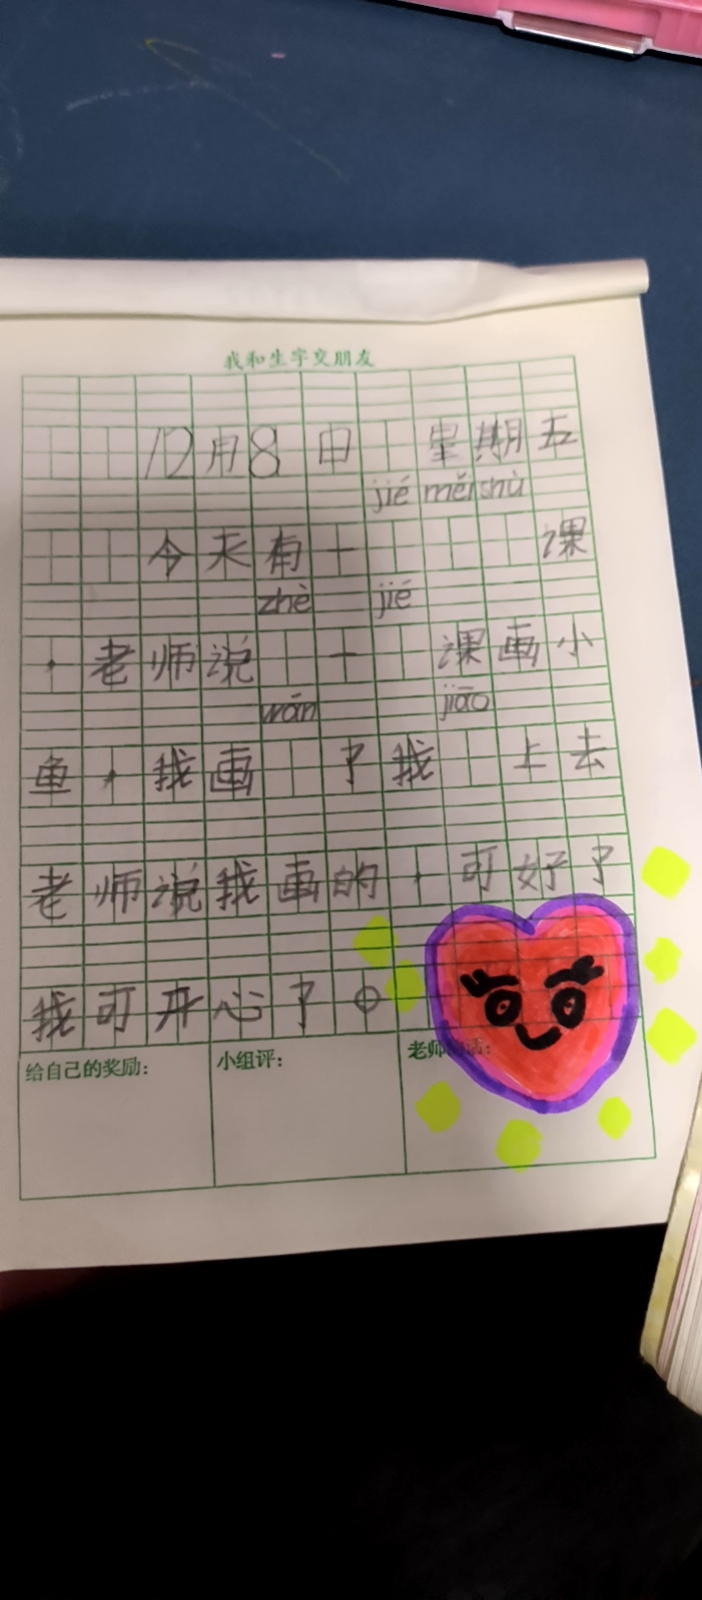 我和生字交朋友
12月8日 星期五
jié měi shù
今天有一 课
zhè jié
，老师说 一 课画小
wán jiāo
鱼，我画 了我 上去
老师说我画的，可好了
我可开心了。
给自己的奖励： 小组评： 老师的话：